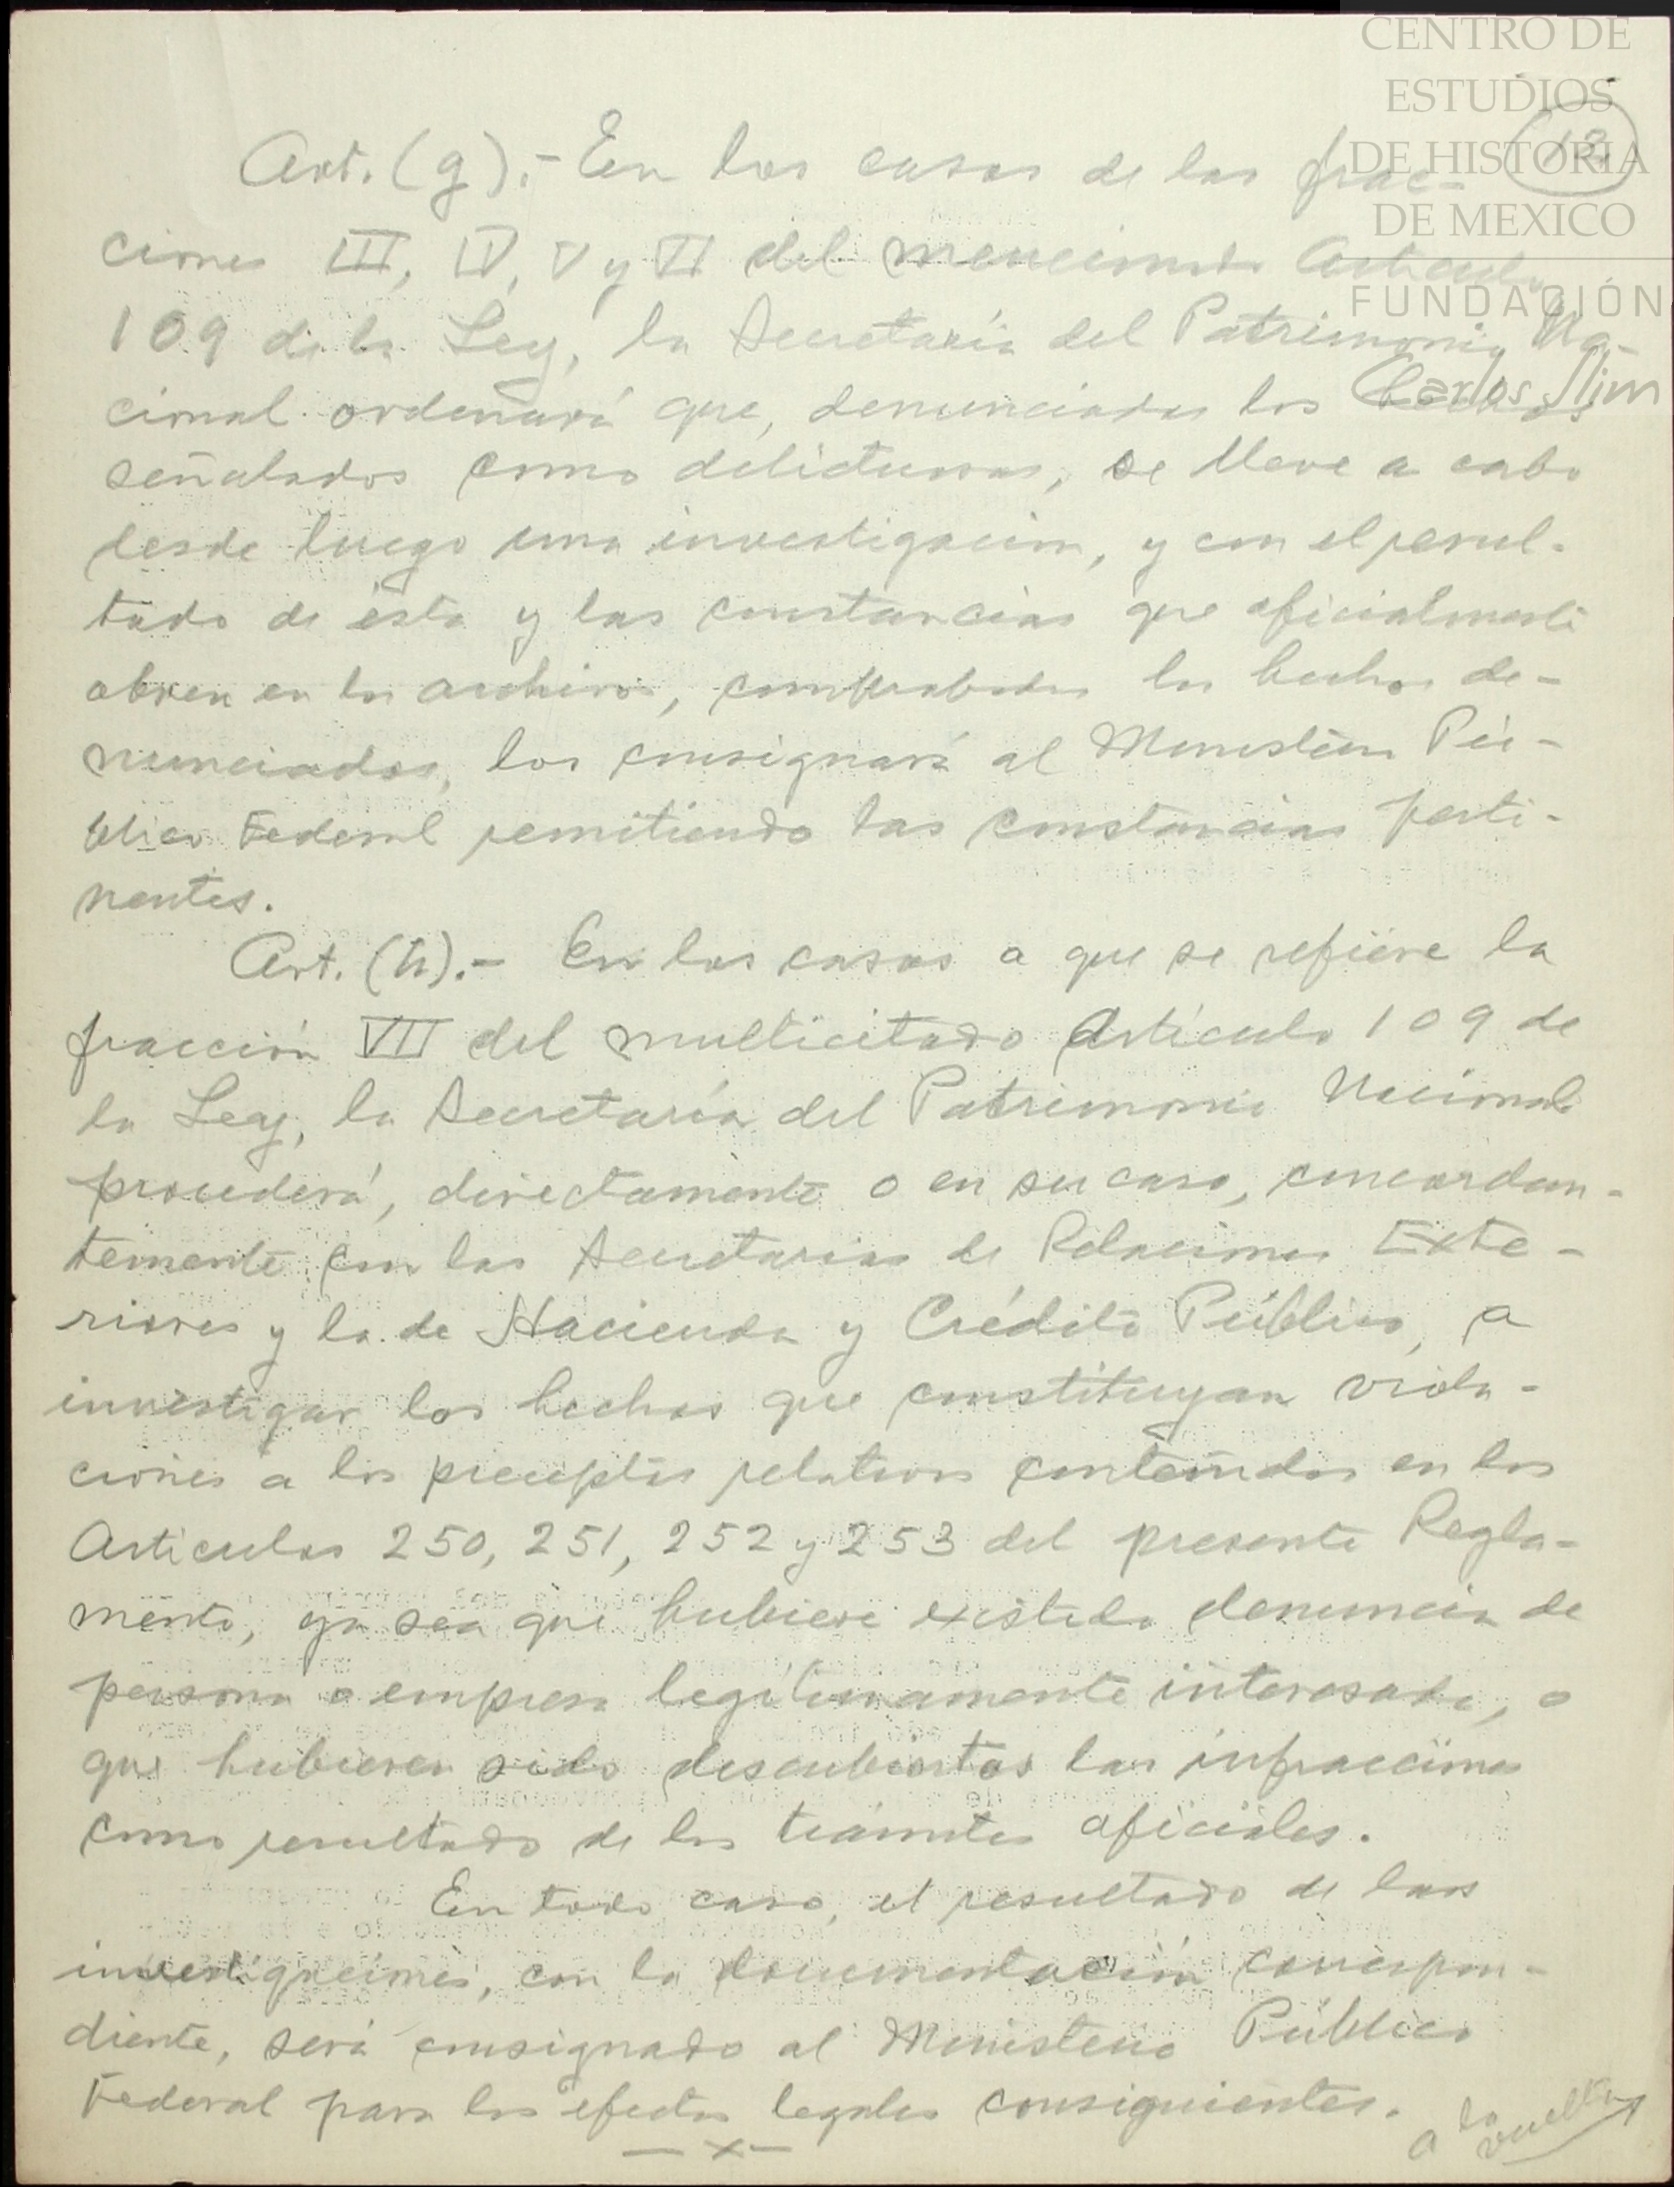 CENTRO DE
ESTUDIOS
DE HISTORIA
DE MEXICO
FUNDACIÓN
Carlos Slim
Art. (g).- En los casos de las frac-
ciones III, IV, V y VI del mencionado Artículo
109 de la Ley, la Secretaría del Patrimonio Na-
cional ordenará que, denunciados los hechos
señalados como delictuosos, se lleve a cabo
desde luego una investigación, y con el resul-
tado de ésta y las constancias que oficialmente
obren en los archivos, comprobados los hechos de-
nunciados, los consignará al Ministerio Pú-
blico Federal remitiendo las constancias perti-
nentes.
Art. (h).- En los casos a que se refiere la
fracción VII del multicitado Artículo 109 de
la Ley, la Secretaría del Patrimonio Nacional
procederá, directamente o en su caso, concordan-
temente con las Secretarias de Relaciones Exte-
riores y la de Hacienda y Crédito Público, a
investigar los hechos que constituyan viola-
ciones a los preceptos relativos contenidos en los
Articulos 250, 251, 252 y 253 del presente Regla-
mento, ya sea que hubiere existido denuncia de
persona o empresa legítimamente interesada, o
que hubieren sido descubiertas las infracciones
como resultado de los trámites oficiales.
En todo caso, el resultado de las
investigaciones, con la documentación correspon-
diente, será consignado al Ministerio Público
Federal para los efectos legales consiguientes.
— x —
a la
vuelta